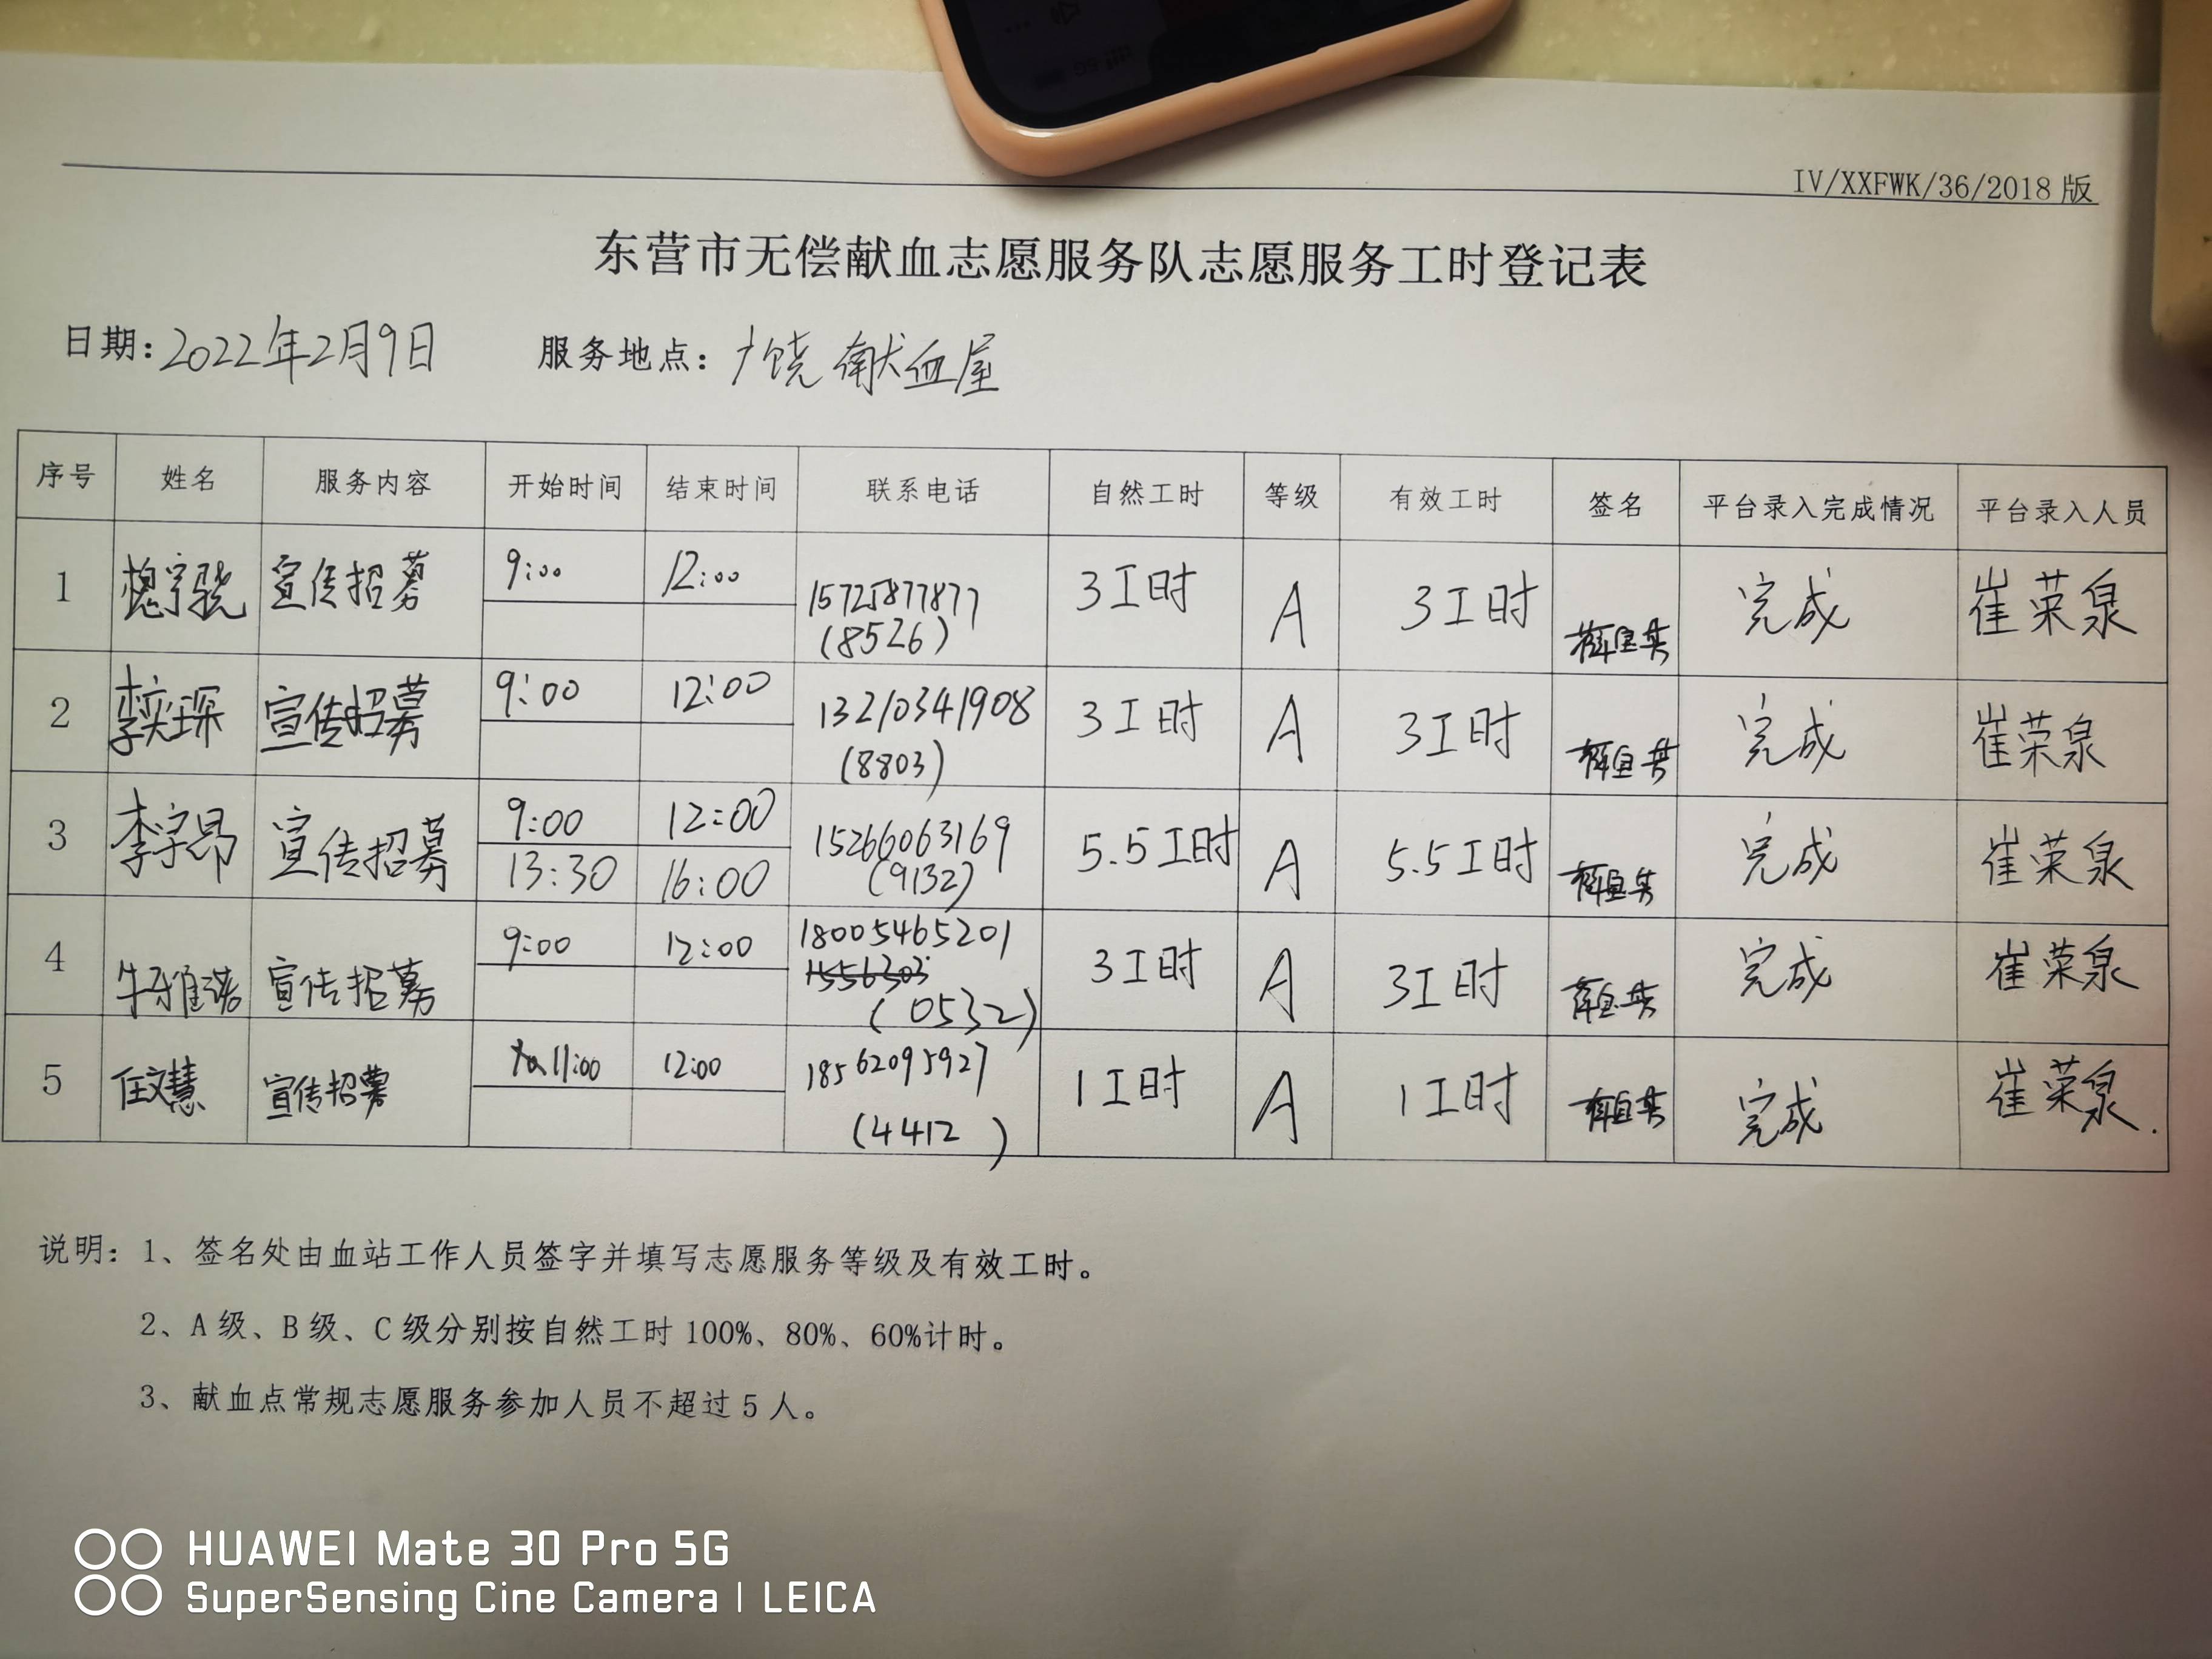 IV/XXFWK/36/2018 版
东营市无偿献血志愿服务队志愿服务工时登记表
日期：2022年2月9日 服务地点：广饶献血屋
序号 姓名 服务内容 开始时间 结束时间 联系电话 自然工时 等级 有效工时 签名 平台录入完成情况 平台录入人员
1 宣传招募 9:00 12:00 15725877877 (8526) 3工时 A 3工时 完成 崔荣泉
2 李奕琛 宣传招募 9:00 12:00 13210341908 (8803) 3工时 A 3工时 完成 崔荣泉
3 李宇昂 宣传招募 9:00 12:00 13:30 16:00 15266063169 (9132) 5.5工时 A 5.5工时 完成 崔荣泉
4 宣传招募 9:00 12:00 18005465201 (0532) 3工时 A 3工时 完成 崔荣泉
5 任文慧 宣传招募 11:00 12:00 18562095927 (4412) 1工时 A 1工时 完成 崔荣泉
说明：1、签名处由血站工作人员签字并填写志愿服务等级及有效工时。
2、A级、B级、C级分别按自然工时100%、80%、60%计时。
3、献血点常规志愿服务参加人员不超过5人。
HUAWEI Mate 30 Pro 5G
SuperSensing Cine Camera | LEICA